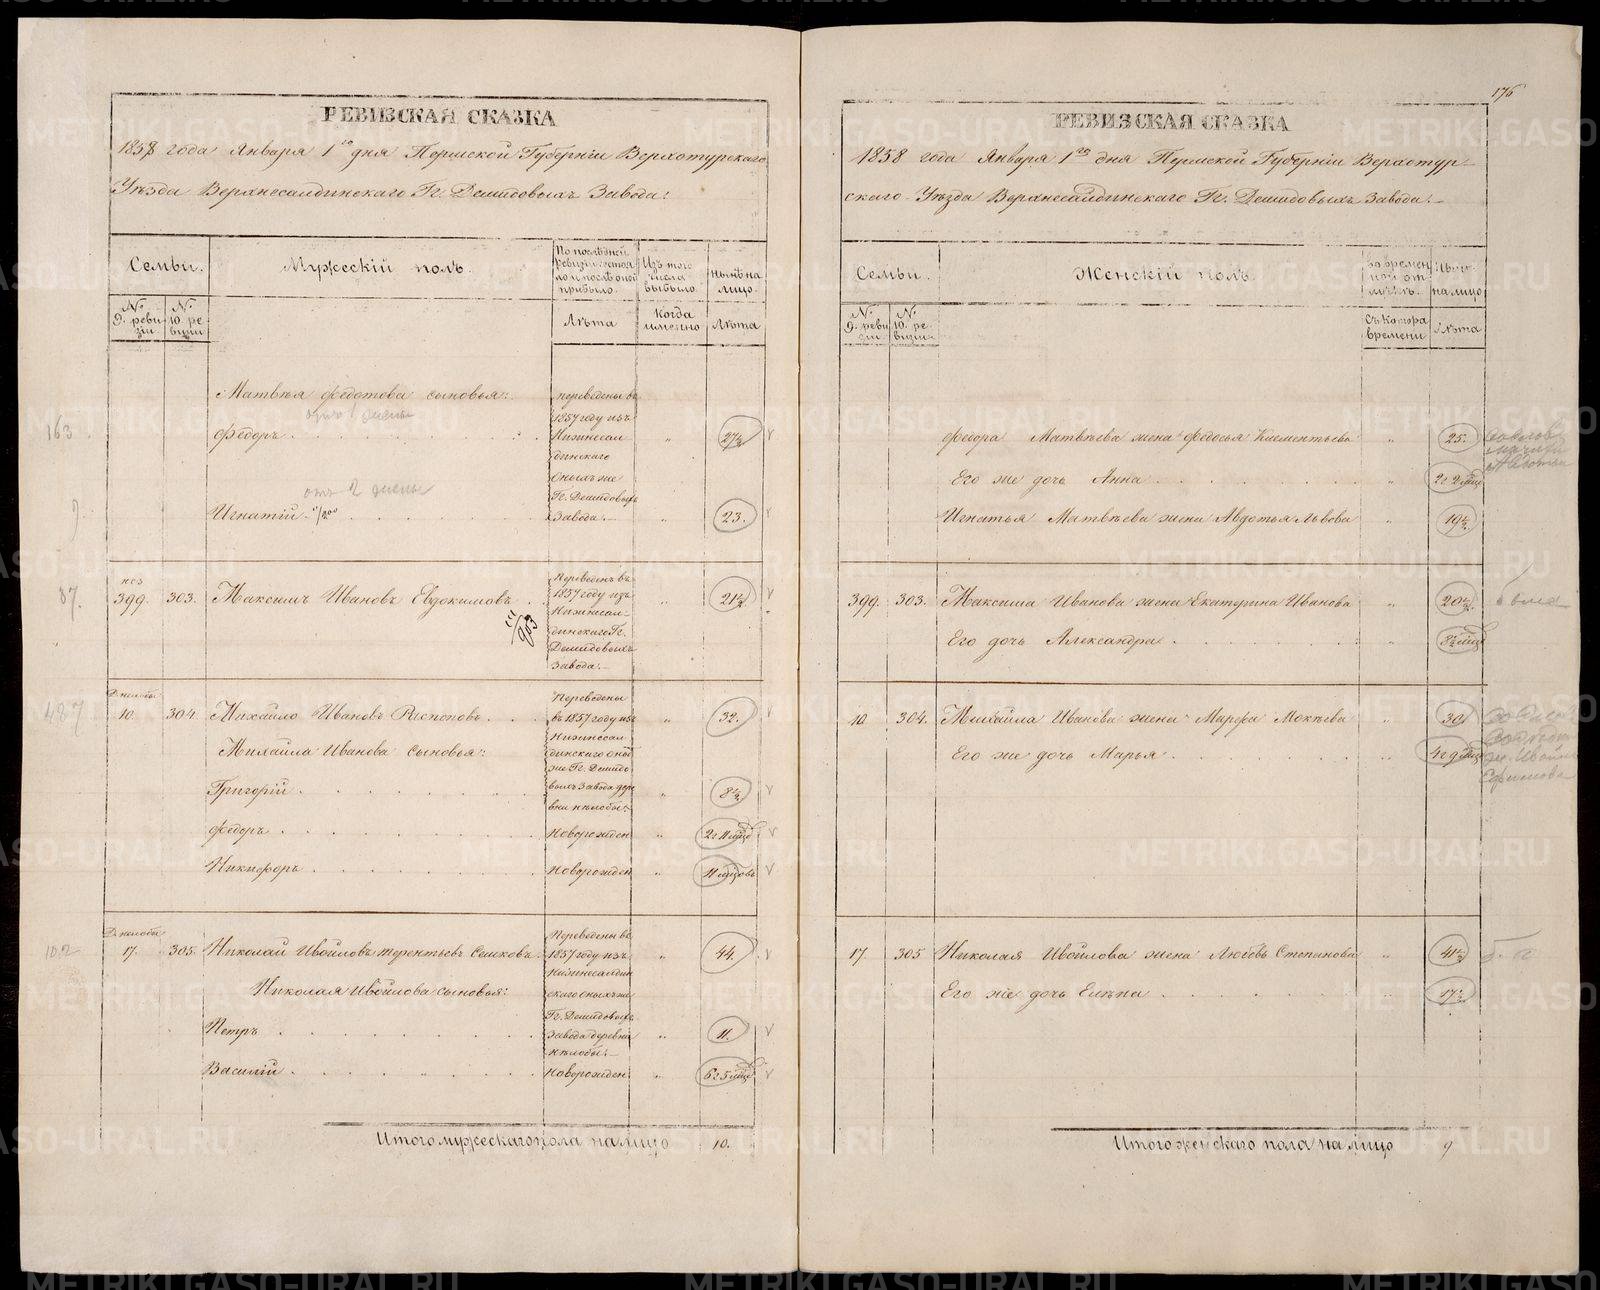 РЕВИЗСКАЯ СКАЗКА
1858 года Января 1го дня Пермской Губерніи Верхотурскаго
Уѣзда Верхнесалдинскаго Гг. Демидовыхъ Завода:
Семьи.
Мужескій полъ.
По послѣдней ревизіи состояло и послѣ оной прибыло.
Изъ того числа выбыло.
нынѣ на лицо.
№ 9. ревизіи
№ 10. ревизіи
Лѣта
Когда именно
Лѣта
Матвѣя Федотова сыновья:
отъ 1 жены
163
Федоръ
переведены въ 1857 году изъ Нижнесалдинскаго оныхъ же Гг. Демидовыхъ Завода.
27½
отъ 2 жены
Игнатій
23.
87.
399. 303. Максимъ Ивановъ Евдокимовъ
Переведенъ въ 1857 году изъ Нижнесалдинскаго Гг. Демидовыхъ Завода.
21½
903
487
10. 304. Михайло Ивановъ Распоповъ
Переведены въ 1857 году изъ Нижнесалдинскаго оныхъ же Гг. Демидовыхъ Завода деревни Нелобы.
32.
Михайла Иванова сыновья:
Григорій 8½
Федоръ Новорожден 2 г 11 мцов
Никифоръ Новорожден 11 мцовъ
102
Д. Нелобы
17. 305. Николай Ивойловъ Терентьевъ Сешковъ
Переведены въ 1857 году изъ Нижнесалдинскаго оныхъ же Гг. Демидовыхъ Завода деревни Нелобы.
44.
Николая Ивойлова сыновья:
Петръ 11.
Василій Новорожден. 6 г 5 мцов
Итого мужескаго пола на лицо 10.
176
РЕВИЗСКАЯ СКАЗКА
1858 года Января 1го дня Пермской Губерніи Верхотур-
скаго Уѣзда Верхнесалдинскаго Гг. Демидовыхъ Завода.
Семьи.
Женскій полъ.
во временной отлучкѣ.
нынѣ на лицо
№ 9. ревизіи
№ 10. ревизіи
Съ котора времени
Лѣта
Федора Матвѣева жена Федосья Клементьева 25.
Его же дочь Анна 2 г 2 мцов
Игнатья Матвѣева жена Авдотья Львова 19½
399. 303. Максима Иванова жена Екатерина Иванова 20½
Его дочь Александра 8½ мцов
10. 304. Михайла Иванова жена Марфа Мокѣева 30
Его же дочь Марья 4 г 9 мцов
17. 305 Николая Ивойлова жена Любовь Степанова 41½
Его же дочь Елена 17½
Итого женскаго пола на лицо 9
METRIKI.GASO-URAL.RU